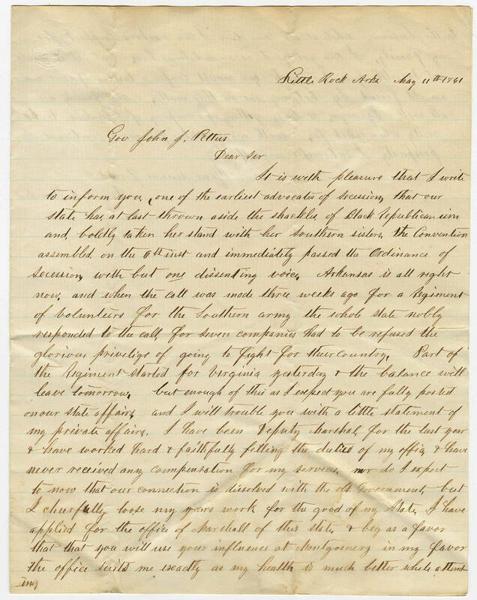 Little Rock Arks May 11th 1861
Gov John J. Pettus
Dear Sir
It is with pleasure that I write
to inform you, one of the earliest advocates of Secession, that our
State has at last thrown aside the shackles of Black Republicanism
and boldly taken her stand with her Southern sisters. the Convention
assembled on the 6th inst and immediately passed the Ordinance of
Secession, with but one dissenting voice, Arkansas is all right
now, and when the call was made three weeks ago for a Regiment
of volunteers for the Southern army the whole state nobly
responded to the call, for seven companies had to be refused the
glorious privilege of going to fight for their country. Part of
the Regiment started for Virginia yesterday & the balance will
leave tomorrow, but enough of this as I expect you are fully posted
on our state affairs, and I will trouble you with a little statement of
my private affairs. I have been Deputy Marshal for the last year
& have worked hard & faithfully filling the duties of my office & have
never received any compensation for my services, nor do I expect
to now that our connection is dissolved with the old Government, but
I cheerfully loose my years work for the good of my State, I have
applied for the office of Marshall of this state & beg as a favor
that that you will use your influence at Montgomery in my favor
the office suits me exactly as my health is much better while attend
-ing